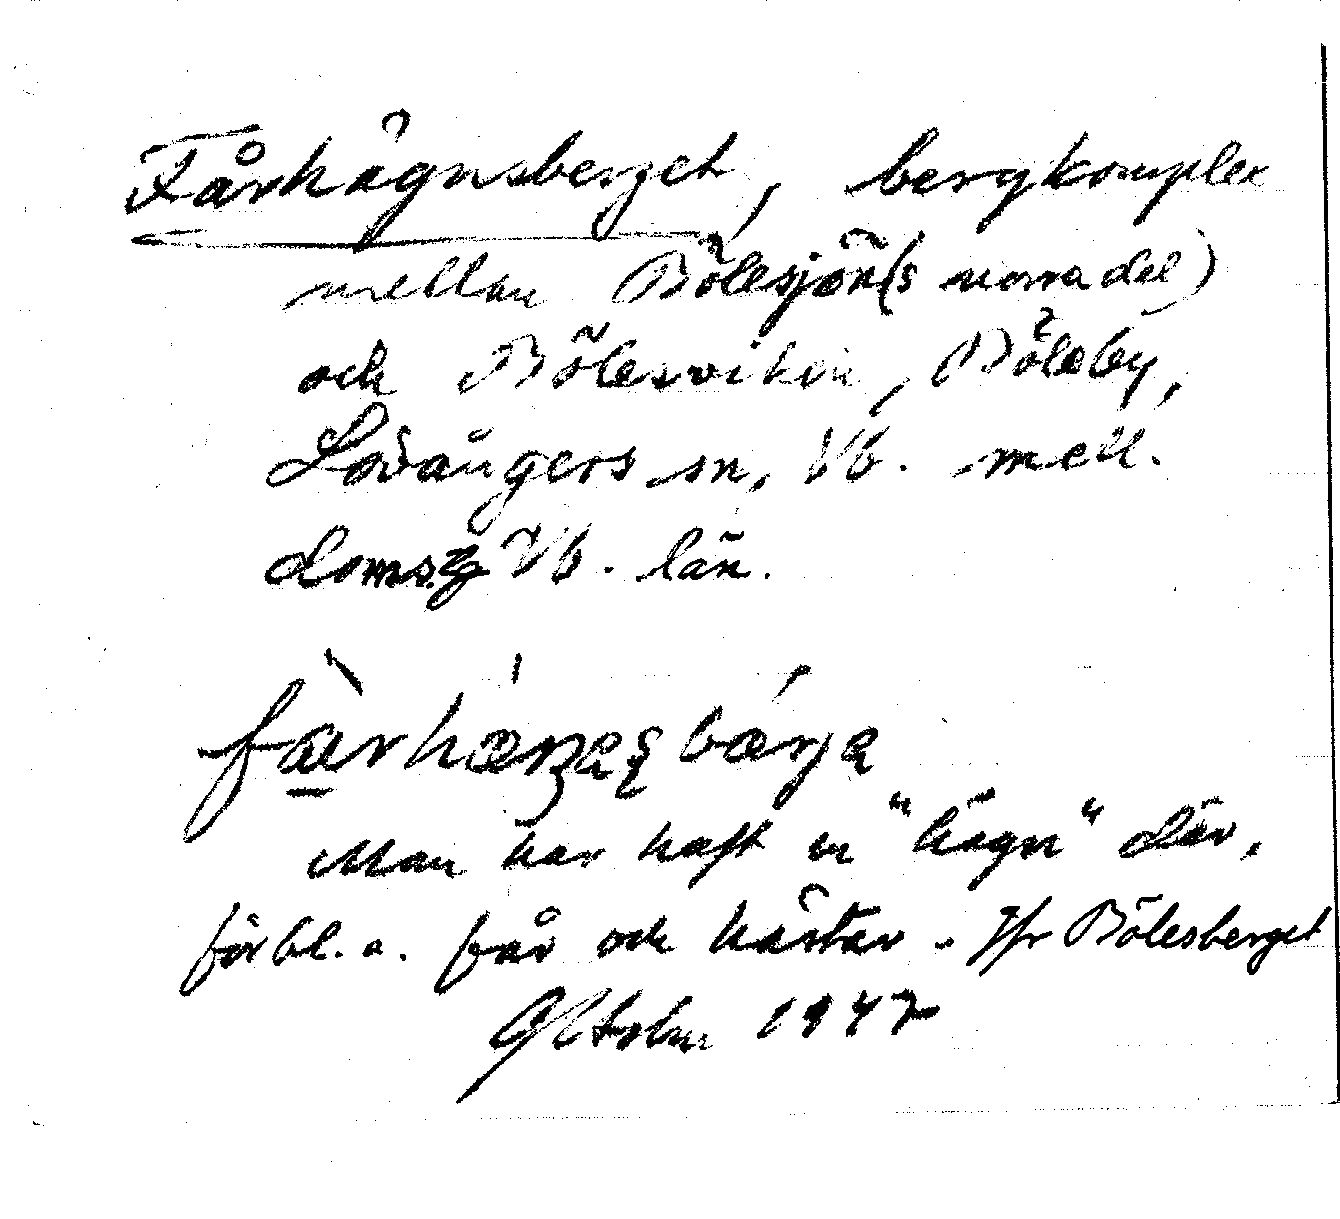 Fårhägnsberget, bergkomplex
mellan Bölesjön(s norra del)
och Bölesviken, Böleby,
Lövångers sn, Vb. mell.
doms. Vb. län.
Man har haft en "hägn" där,
för bl. a. får och hästar. Jfr Bölesberget
1947